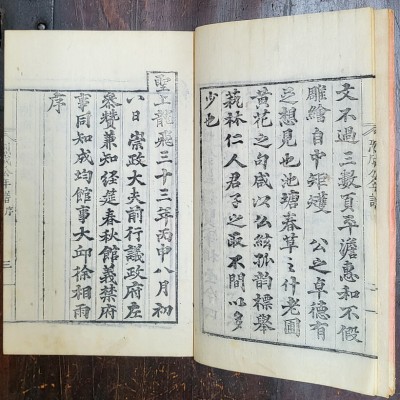 文不過三數頁平澹惠和不假
雕繪自中矩矱　公之卓德有
之想見也池塘春草之什老圃
黃花之句咸以公絃孤韵標舉
蓺林仁人君子之敢不間以多
少也
聖上龍飛三十三年丙申八月初
八日崇政大夫前行議政府左
叅贊兼知經筵春秋館義禁府
事同知成均館事大邱徐相雨
序